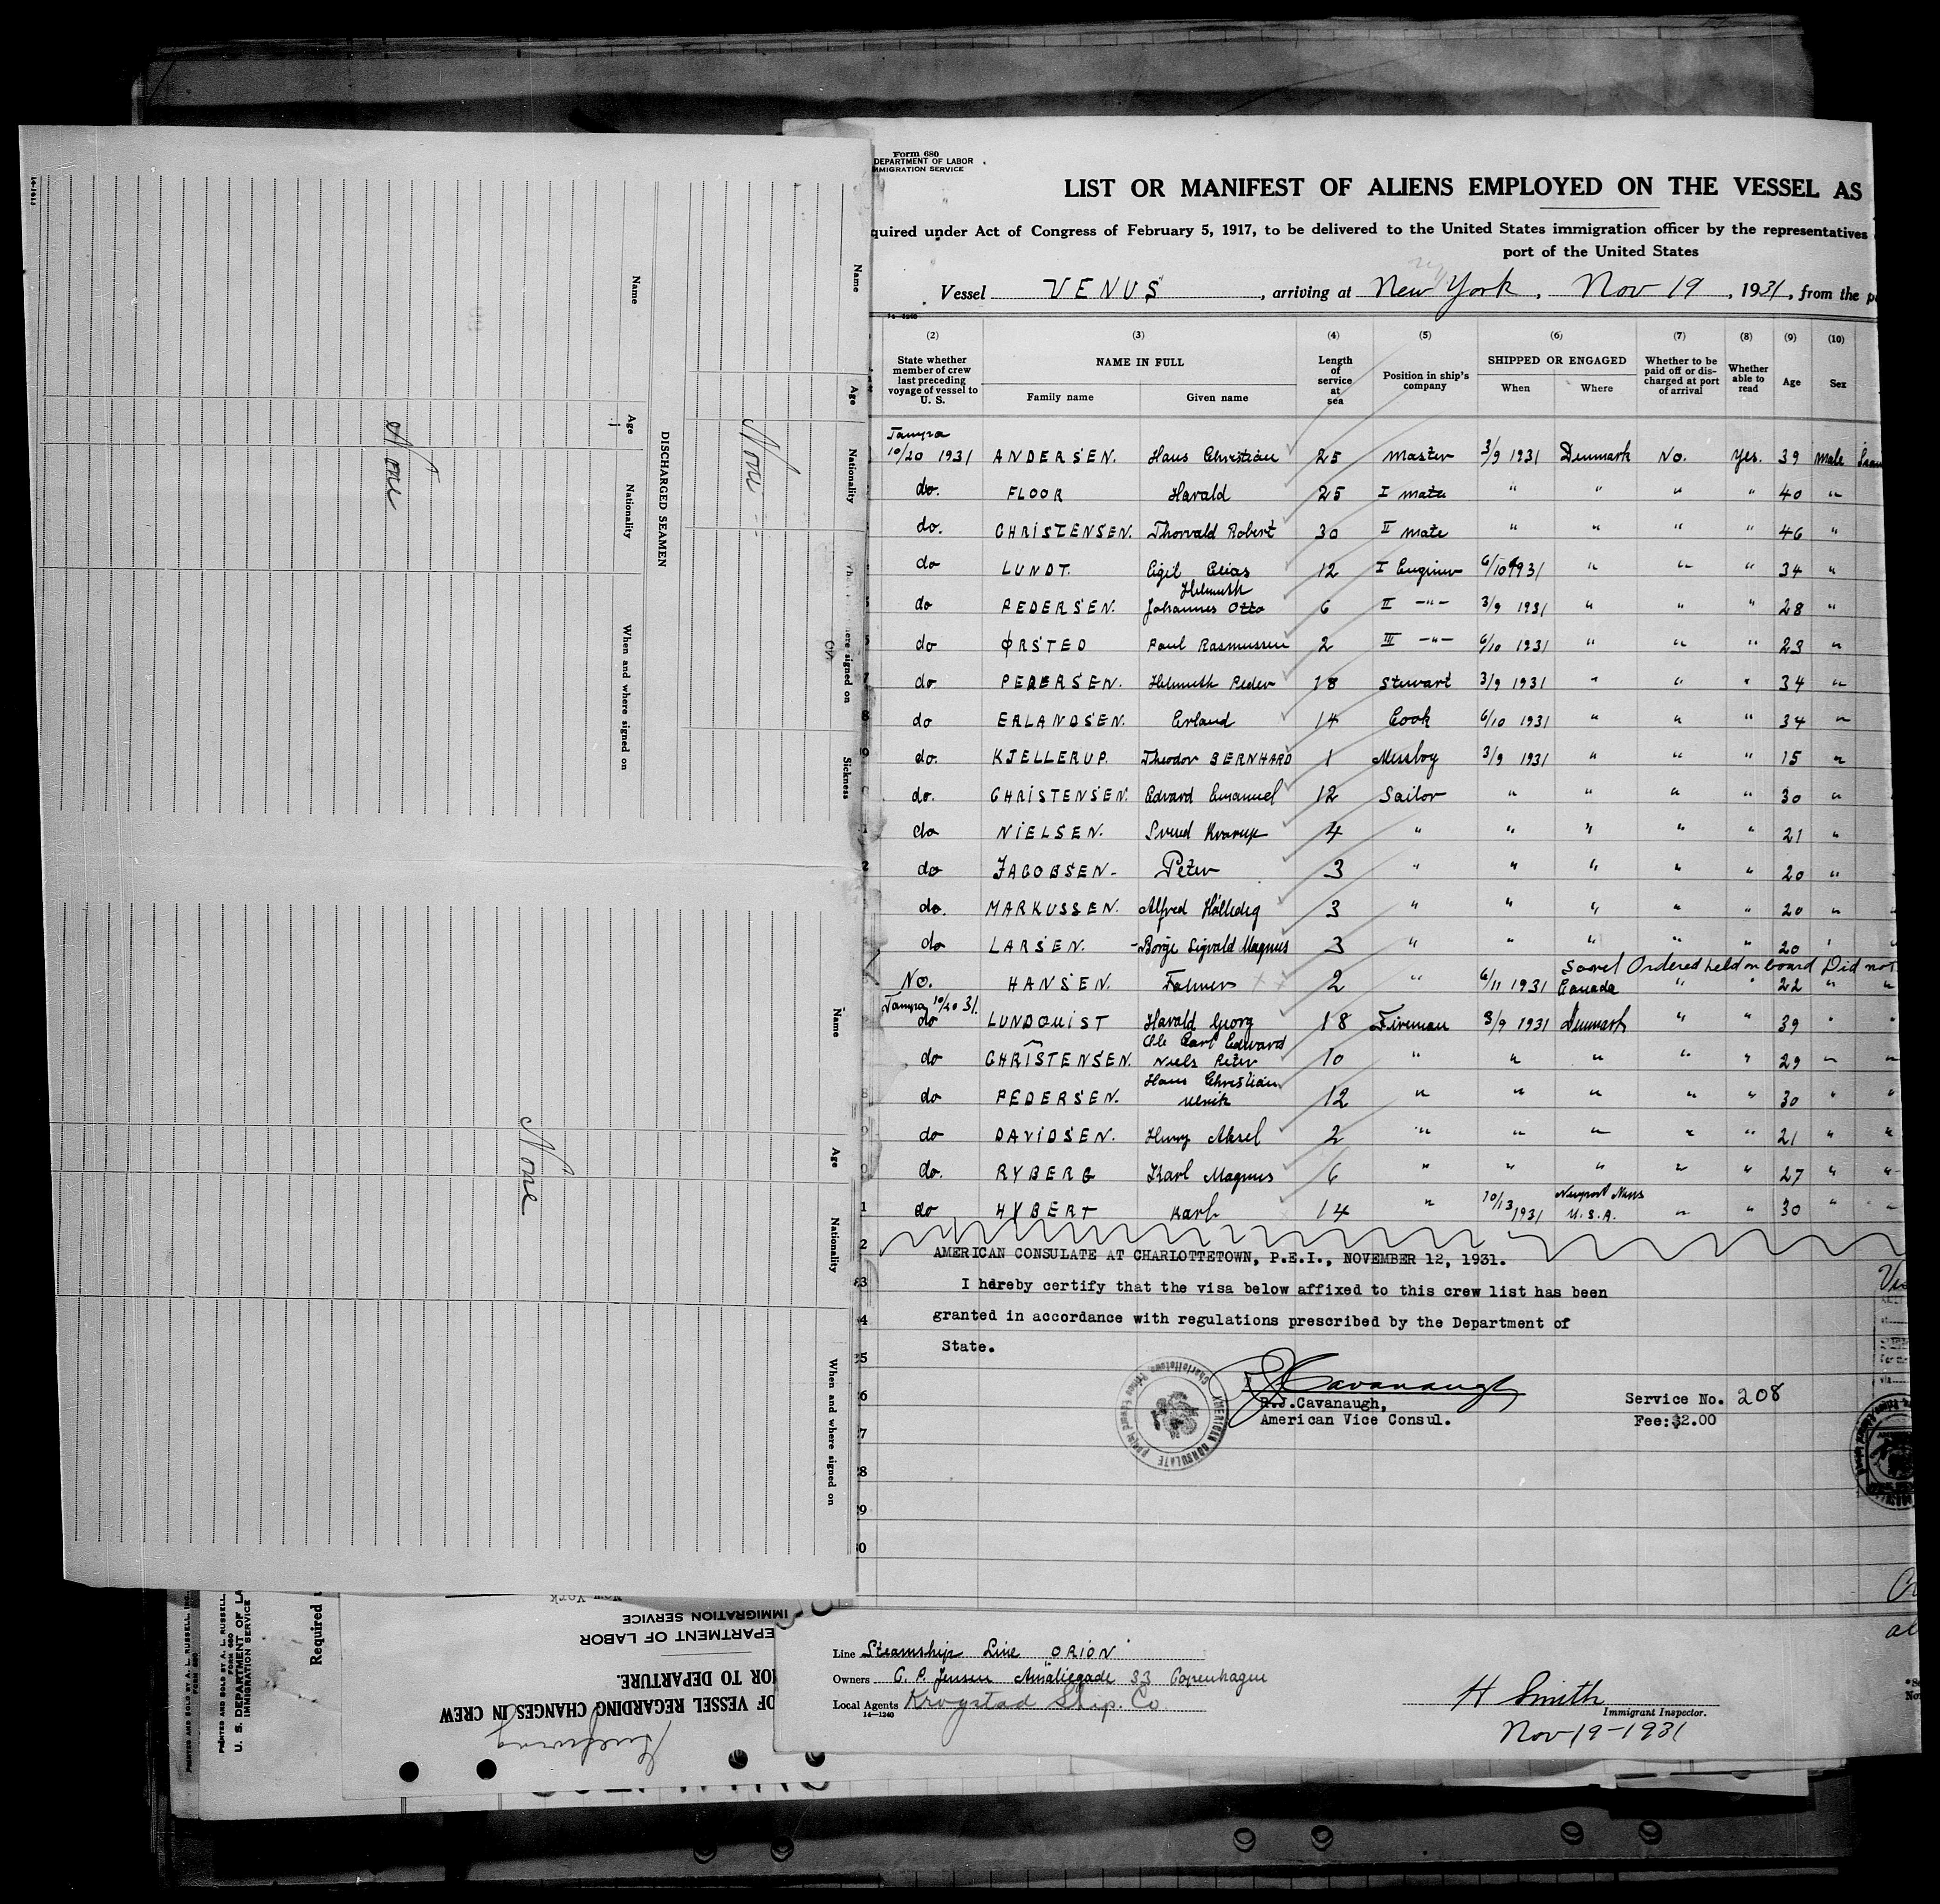 Form 680
DEPARTMENT OF LABOR
MMIGRATION SERVICE
LIST OR MANIFEST OF ALIENS EMPLOYED ON THE VESSEL AS
quired under Act of Congress of February 5, 1917, to be delivered to the United States immigration officer by the representatives
port of the United States
Vessel VENUS, arriving at New York, Nov 19, 1931, from the p
(2) (3) (4) (5) (6) (7) (8) (9) (10)
State whether member of crew last preceding voyage of vessel to U. S. NAME IN FULL Length of service at sea Position in ship's company SHIPPED OR ENGAGED Whether to be paid off or discharged at port of arrival Whether able to read Age Sex
Family name Given name When Where
Tampa
10/20 1931 ANDERSEN. Hans Christian 25 Master 3/9 1931 Denmark No. Yes. 39 male
do. FLOOR Harald 25 I mate " " " " 40 "
do. CHRISTENSEN. Thorvald Robert 30 II mate " " " " 46 "
do LUNDT. Eigil Elias 12 I Engineer 6/10 1931 " " " 34 "
Helmuth
do PEDERSEN. Johannes Otto 6 II -"- 3/9 1931 " " " 28 "
do ØRSTED Paul Rasmussen 2 III -"- 6/10 1931 " " " 23 "
7 do PEDERSEN. Helmuth Peder 18 Stewart 3/9 1931 " " " 34 "
8 do ERLANDSEN. Erland 14 Cook 6/10 1931 " " " 34 "
do. KJELLERUP. Theodor BERNHARD 1 Messboy 3/9 1931 " " " 15 "
do. CHRISTENSEN. Edvard Emanuel 12 Sailor " " " " 30 "
do NIELSEN. Svend 4 " " " " " 21 "
2 do JACOBSEN- Peter 3 " " " " " 20 "
do. MARKUSSEN. Alfred 3 " " " " " 20 "
do LARSEN. Borge Sigvald Magnus 3 " " " " " 20 "
Ordered held on board Did not
No. HANSEN. 2 " 6/11 1931 Canada " " 22 " "
Tampa 10/20 31.
do LUNDQUIST Harald Georg 18 Fireman 3/9 1931 Denmark " " 39 " "
Ole Carl Edward
do CHRISTENSEN. Niels Peter 10 " " " " " 29 " "
Hans Christian
8 do PEDERSEN. 12 " " " " " 30 " "
do DAVIDSEN. Henry Aksel 2 " " " " " 21 " "
do. RYBERG Karl Magnus 6 " " " " " 27 " "
1 do HYBERT Karl 14 " 10/13 1931 Newport News U.S.A. " " 30 " "
2 AMERICAN CONSULATE AT CHARLOTTETOWN, P.E.I., NOVEMBER 12, 1931.
I hereby certify that the visa below affixed to this crew list has been
granted in accordance with regulations prescribed by the Department of
State.
AMERICAN CONSULATE
Charlottetown, Prince Edward Island
Cavanaugh
Cavanaugh,
American Vice Consul.
Service No. 208
Fee:$2.00
Line Steamship Line "ORION"
Owners C. P. Jensen Amaliegade 33 Copenhagen
Local Agents Krogstad Ship. Co.
14—1240
H Smith
Immigrant Inspector.
Nov-19-1931
Name Age Nationality When and where signed on
None
DISCHARGED SEAMEN
Name Age Nationality here signed on Sickness
None
Name Age Nationality When and where signed on
None
PRINTED AND SOLD BY A. L. RUSSELL, INC.
FORM 680
U. S. DEPARTMENT OF LA
IMMIGRATION SERVICE
Required
New York
IMMIGRATION SERVICE
EPARTMENT OF LABOR
IOR TO DEPARTURE.
OF VESSEL REGARDING CHANGES IN CREW